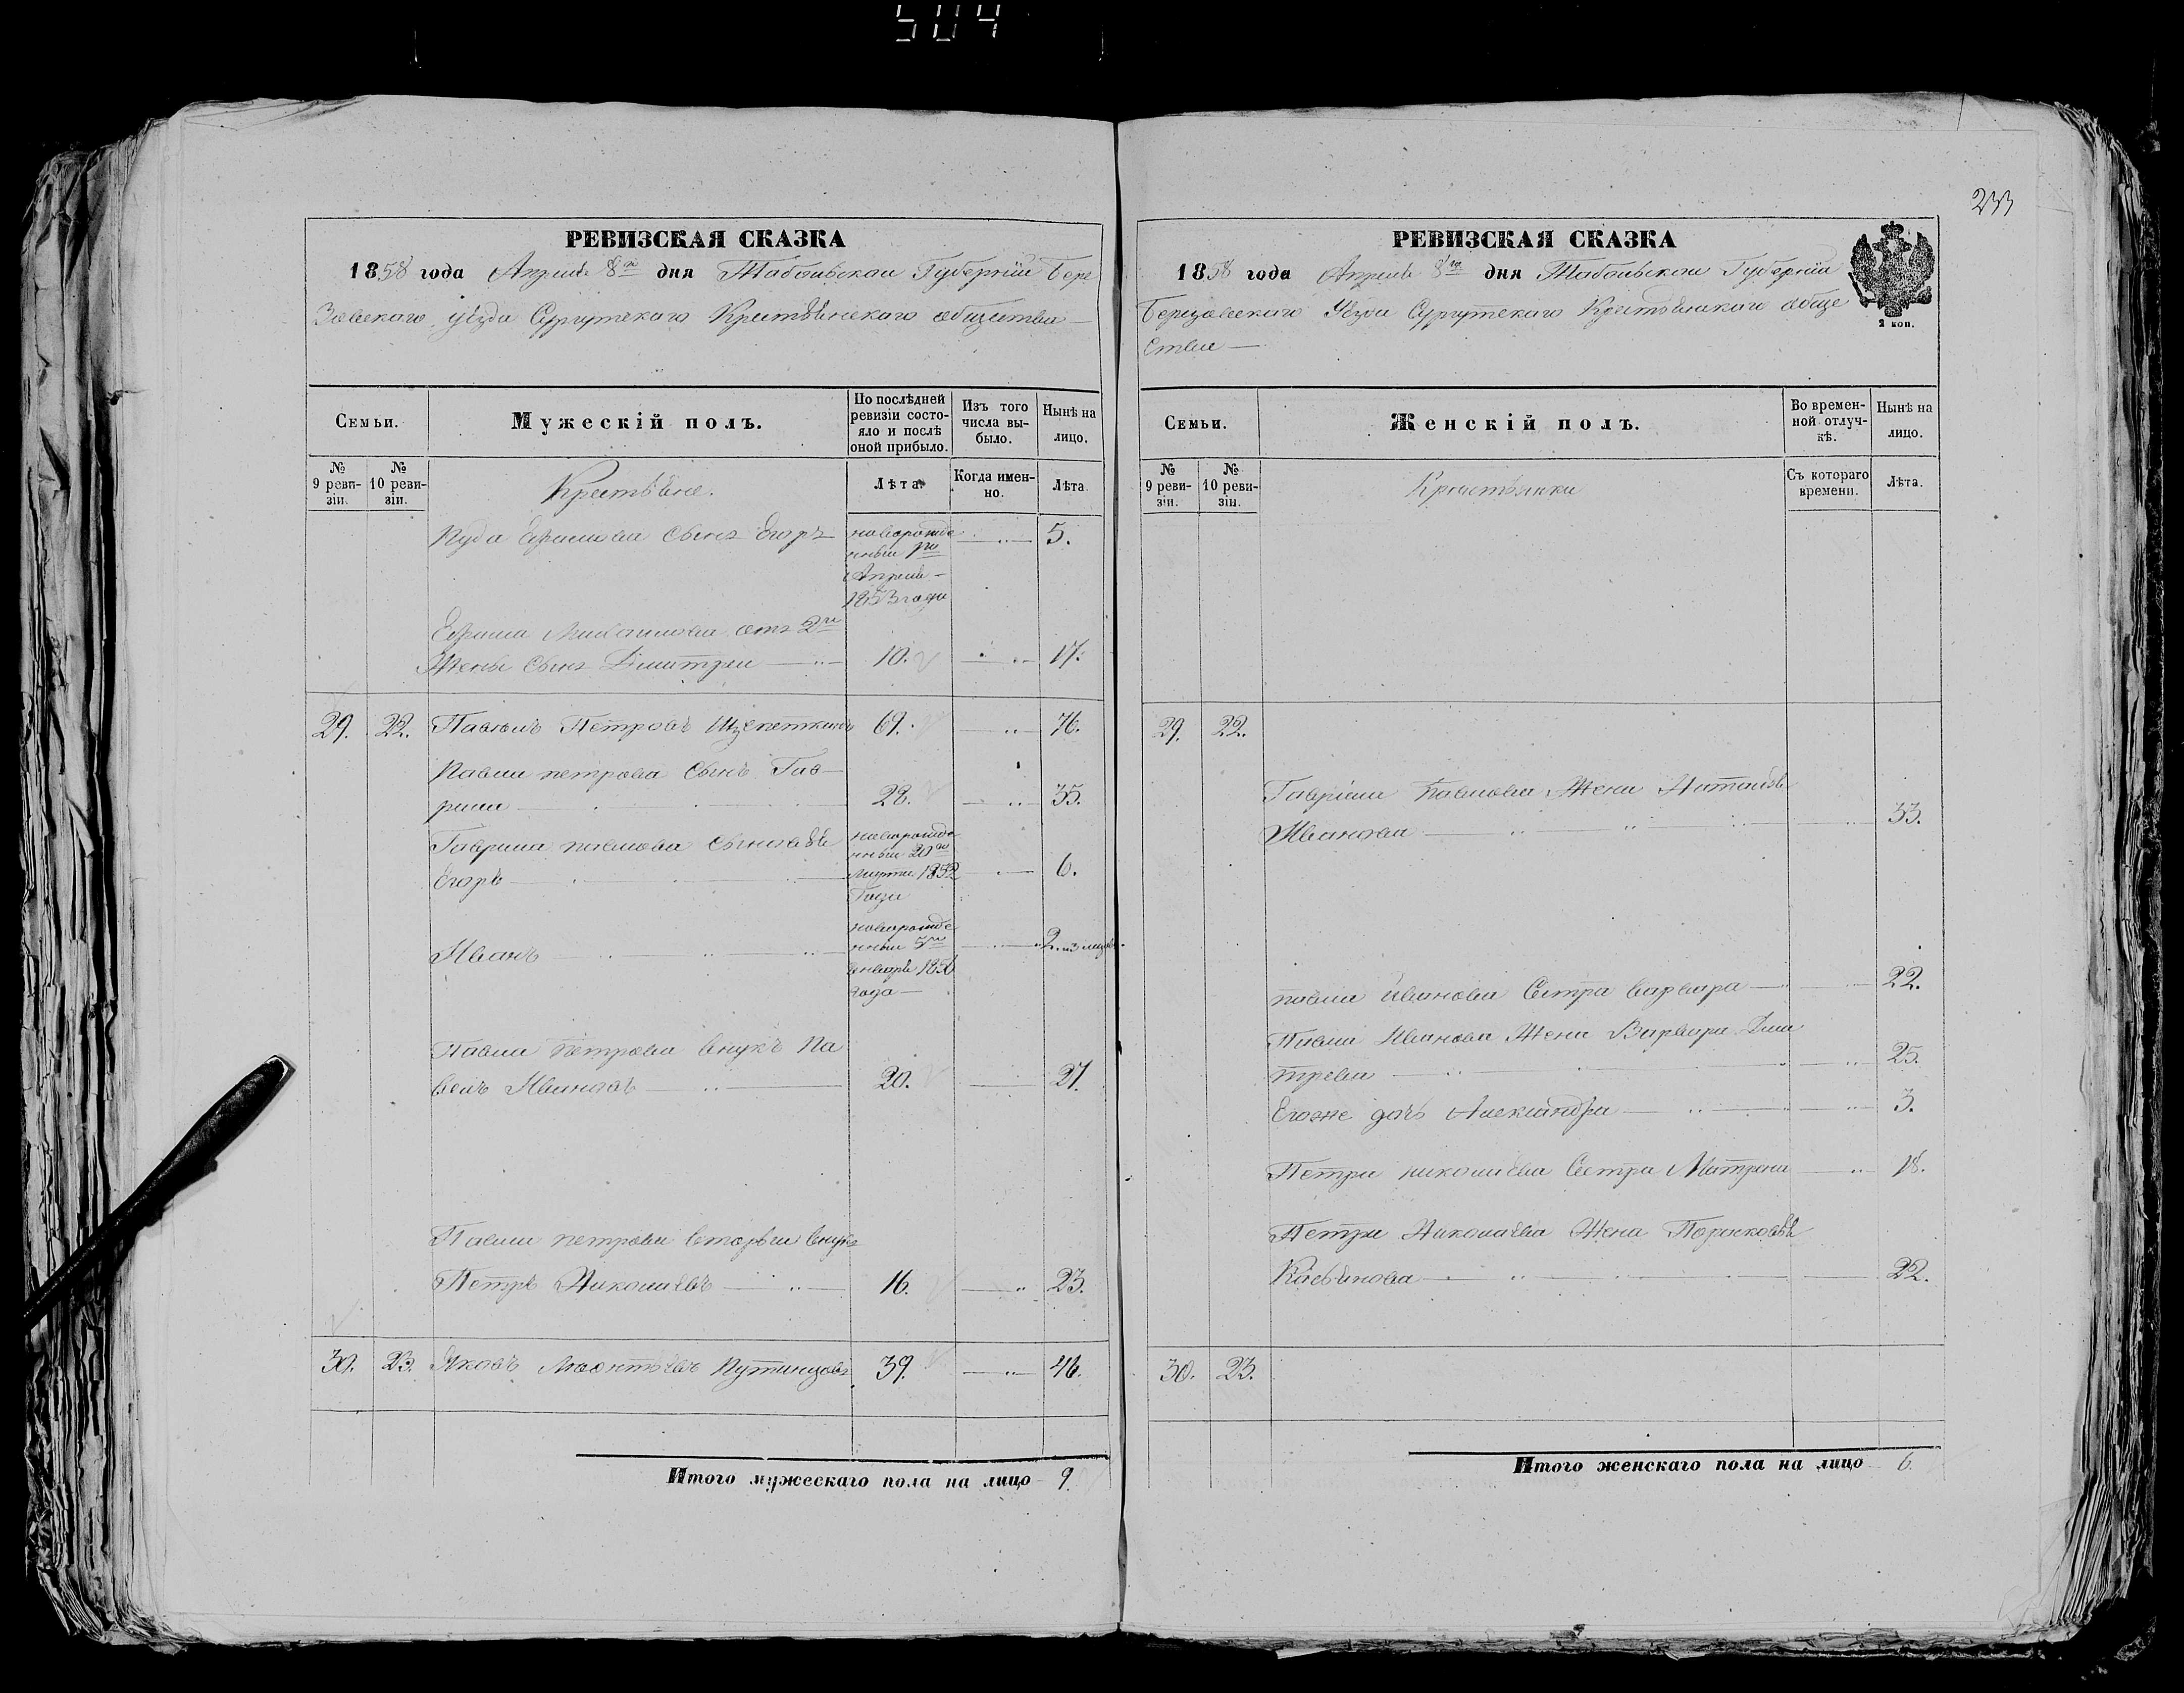 504
РЕВИЗСКАЯ СКАЗКА
1858 года Апреля 8го дня Тобольской Губернiи Бере
зовскаго уезда Сургутскаго Крестьянскаго общества
Семьи.
Мужескiй полъ.
По послѣдней ревизiи состо-
яло и послѣ
оной прибыло.
Изъ того
числа вы-
было.
Нынѣ на
лицо.
№
9 реви-
зiи.
№
10 реви-
зiи.
Крестьяне.
Лѣта
Когда имен-
но.
Лѣта.
сынъ Егоръ новорожде 5.
нный
Апреля
1853 года
отъ 2й
жены сынъ Димитрей 10. 17.
29. 22. Павелъ Петровъ Щепеткинъ 69. 76.
Павла петрова сынъ Гав
рила 28. 35.
Гаврила павлова сыновья новорожде
нный 20го
Егоръ марта 1852 6.
года
новорожде
Иванъ нный 5го 2. 
января 1856
года
Павла Петрова внукъ Па
велъ Ивановъ 20. 27.
Павла петрова вторый внукъ
Петръ Николаевъ 16. 23.
30. 23. Яковъ Леонтьевъ Кутинцовъ 39. 46.
Итого мужескаго пола на лицо 9.
233
РЕВИЗСКАЯ СКАЗКА
1858 года Апреля 8го дня Тобольской Губернiи
Березовскаго Уезда Сургутскаго Крестьянскаго обще
ства
2 коп.
Семьи.
Женскiй полъ.
Во времен-
ной отлуч-
кѣ.
Нынѣ на
лицо.
№
9 реви-
зiи.
№
10 реви-
зiи.
Крестьянки
Съ котораго
времени.
Лѣта.
29. 22.
Гаврiила Павлова Жена Наталья
Иванова 33.
павла Иванова Сестра варвара 22.
Павла Иванова Жена Варвара Дми
трева 25.
Егоже дочь Александра 3.
Петра николаева Сестра Матрена 18.
Петра Николаева Жена
Касьянова 22.
30. 23.
Итого женскаго пола на лицо 6.